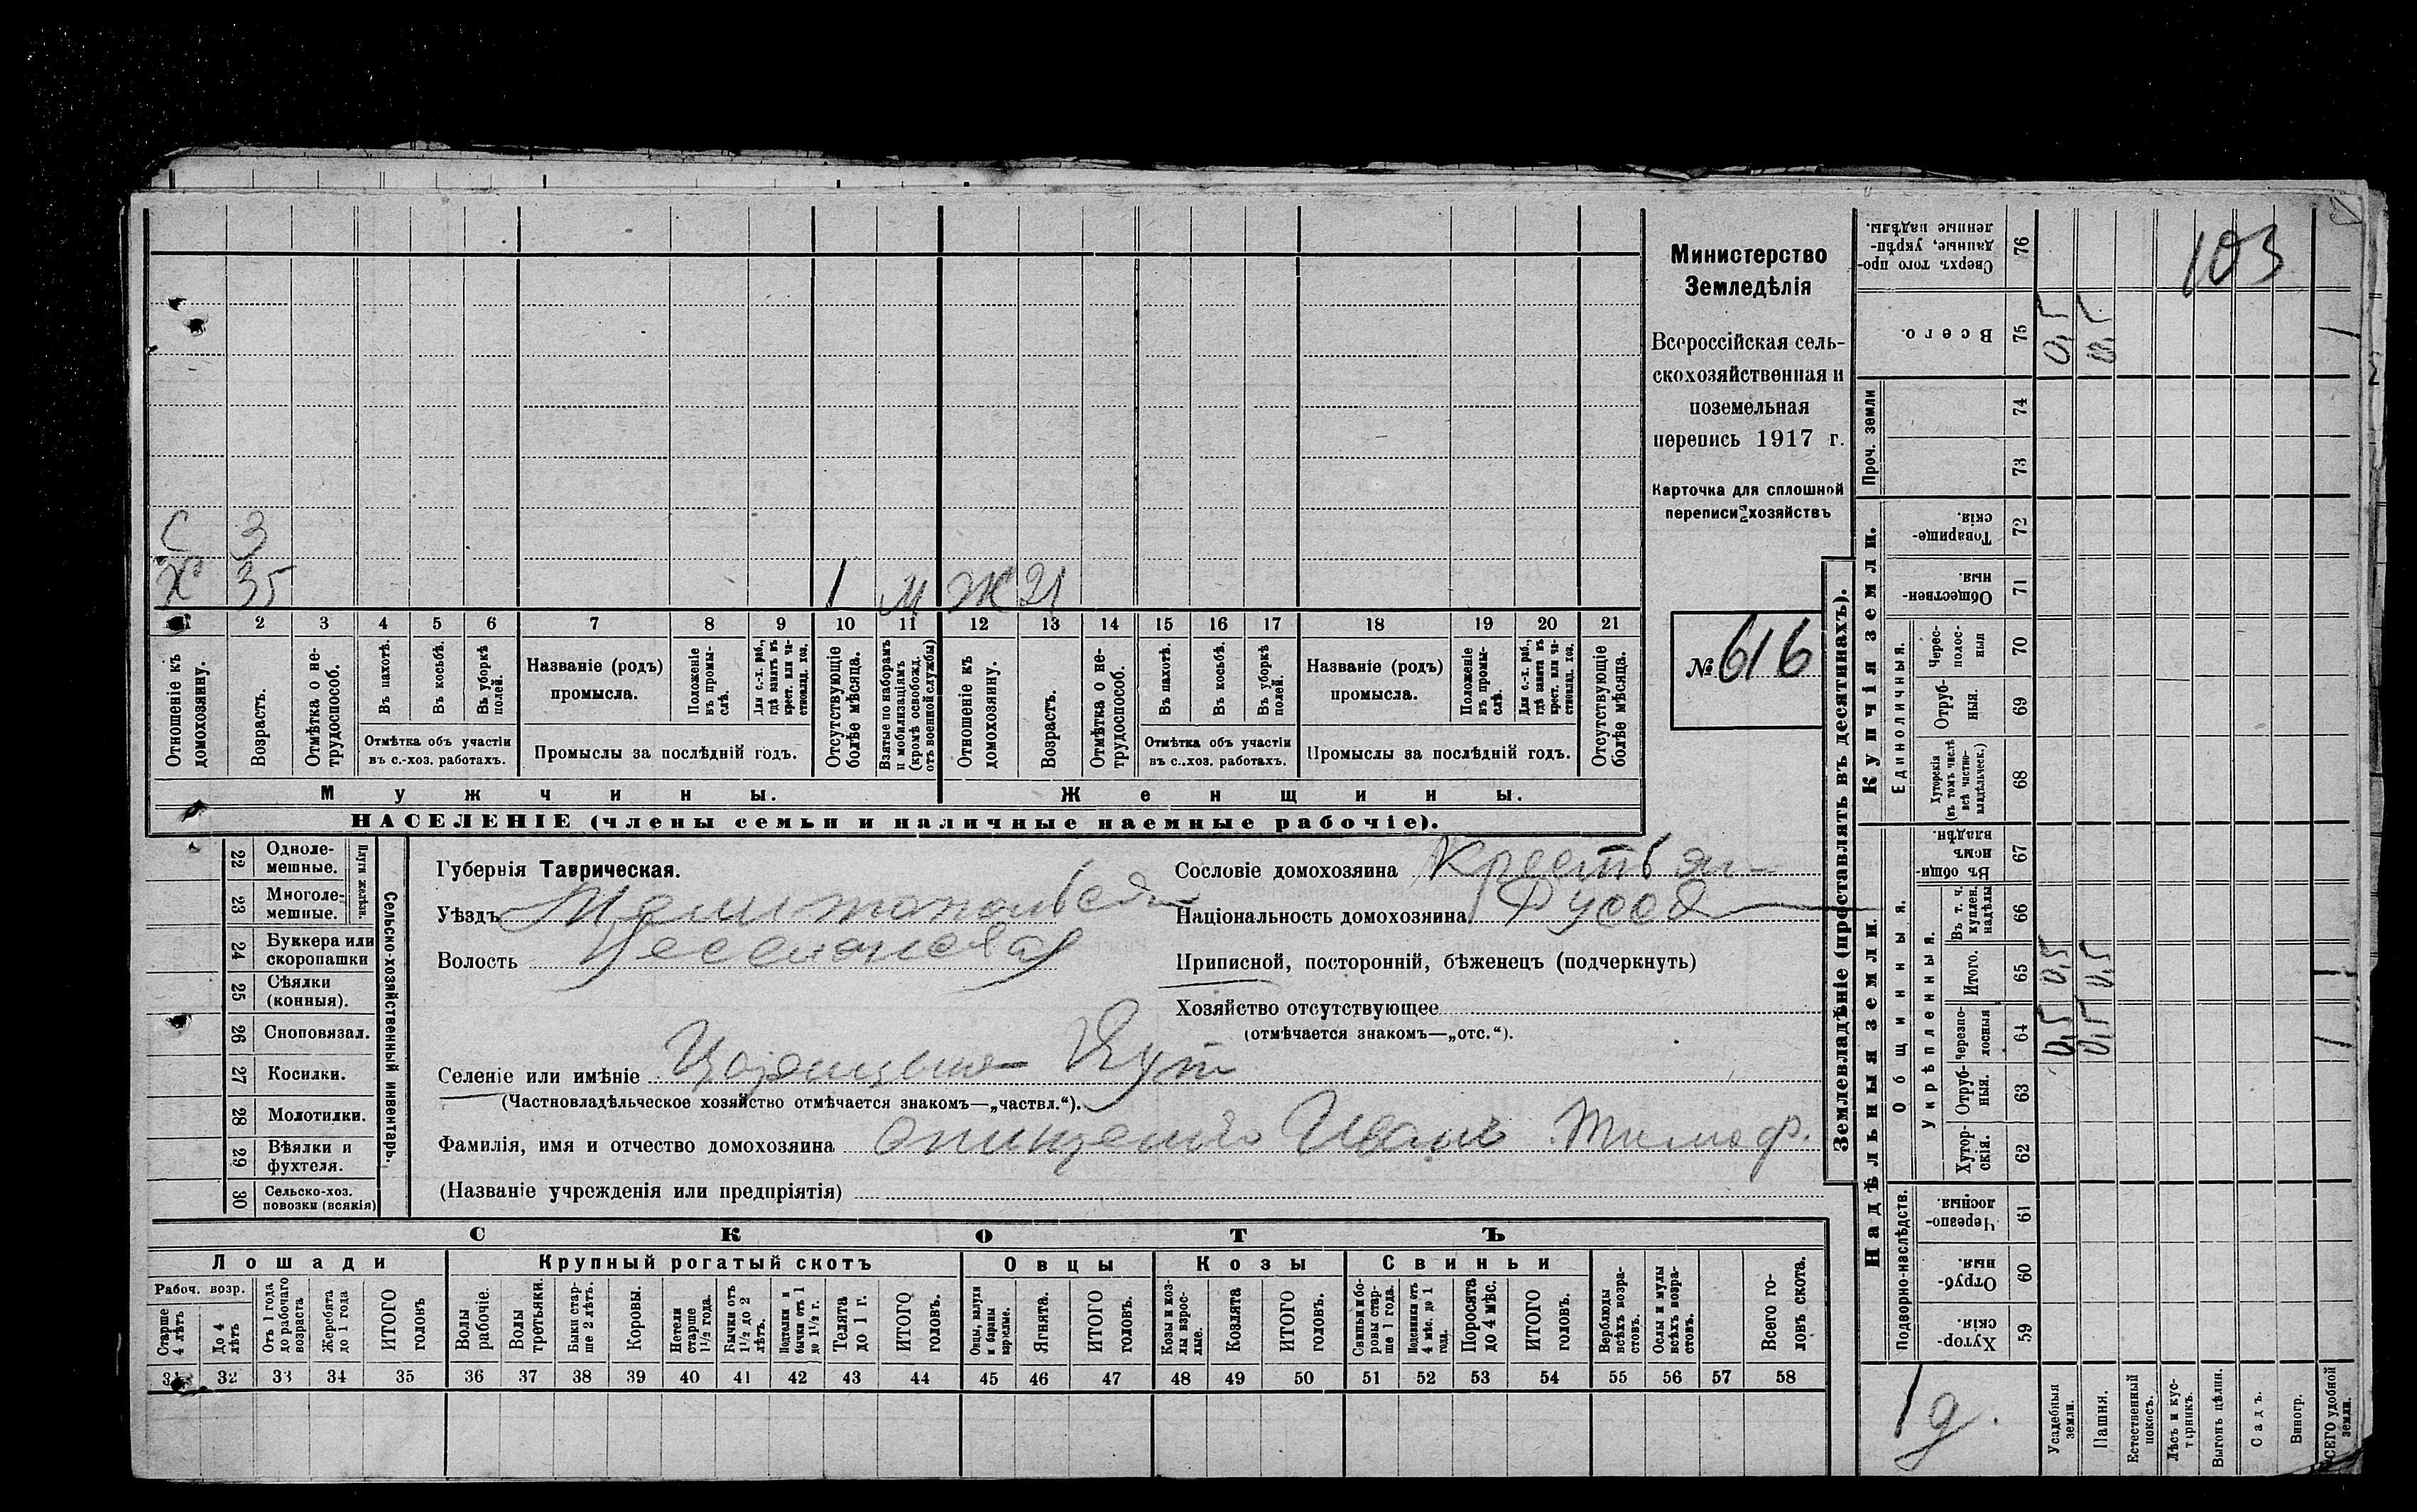 Министерство
Земледѣлія
Всероссійская сель-
скохозяйственная и
поземельная
перепись 1917 г.
Карточка для сплошной
переписи хозяйствъ
№ 616
С 3
Х 35 1 М Ж 21
1 2 3 4 5 6 7 8 9 10 11 12 13 14 15 16 17 18 19 20 21
Отношеніе къ домохозяину.
Возрастъ.
Отмѣтка о не-трудоспособ.
Въ пахотѣ.
Въ косьбѣ.
Въ уборкѣ полей.
Отмѣтка объ участіи
въ с.-хоз. работахъ.
Названіе (родъ)
промысла.
Положеніе въ промы-слѣ.
Для с.-х. раб., гдѣ занятъ въ крест. или ча-стновлад. хоз.
Промыслы за послѣдній годъ.
Отсутствующіе болѣе мѣсяца.
Взятые по наборамъ и мобилизаціямъ (кромѣ освобожд. отъ военной службы)
Отношеніе къ домохозяину.
Возрастъ.
Отмѣтка о не-трудоспособ.
Въ пахотѣ.
Въ косьбѣ.
Въ уборкѣ полей.
Отмѣтка объ участіи
въ с.-хоз. работахъ.
Названіе (родъ)
промысла.
Положеніе въ промы-слѣ.
Для с.-х. раб., гдѣ занята въ крест. или ча-стновлад. хоз.
Промыслы за послѣдній годъ.
Отсутствующіе болѣе мѣсяца.
Мужчины.
Женщины.
НАСЕЛЕНІЕ (члены семьи и наличные наемные рабочіе).
22 Одноле-мешные.
23 Многоле-мешные.
Плуги желѣзн.
24 Буккера или скоропашки
25 Сѣялки (конныя).
26 Сноповязал.
27 Косилки.
28 Молотилки.
29 Вѣялки и фухтеля.
30 Сельско-хоз. повозки (всякія)
Сельско-хозяйственный инвентарь.
Губернія Таврическая.
Уѣздъ Мелитопольск
Волость
Сословіе домохозяина Крестьян
Національность домохозяина Русск
Приписной, посторонній, бѣженецъ (подчеркнуть)
Хозяйство отсутствующее
(отмѣчается знакомъ—„отс.“).
Селеніе или имѣніе Кут
(Частновладѣльческое хозяйство отмѣчается знакомъ—„частвл.“).
Фамилія, имя и отчество домохозяина Онищенко Иванъ Тимоф.
(Названіе учрежденія или предпріятія)
СКОТЪ
Лошади
Крупный рогатый скотъ
Овцы
Козы
Свиньи
Рабоч. возр.
Старше 4 лѣтъ
До 4 лѣтъ
Отъ 1 года до рабочаго возраста
Жеребята до 1 года
ИТОГО головъ
Волы рабочіе.
Волы третьяки.
Быки стар-ше 2 лѣтъ.
Коровы.
Нетели старше 1½ года.
Бычки отъ 1½ до 2 лѣтъ.
Подтелки и бычки отъ 1 до 1½ г.
Телята до 1 г.
ИТОГО головъ.
Овцы, валухи и бараны взрослые.
Ягнята.
ИТОГО головъ.
Козы и коз-лы взрос-лые.
Козлята
ИТОГО головъ.
Свиньи и бо-ровы стар-ше 1 года.
Подсвинки отъ 4 мѣс. до 1 года.
Поросята до 4 мѣс.
ИТОГО головъ.
Верблюды всѣхъ возра-стовъ.
Ослы и мулы всѣхъ возра-стовъ.
Всего го-ловъ скота.
31 32 33 34 35 36 37 38 39 40 41 42 43 44 45 46 47 48 49 50 51 52 53 54 55 56 57 58
Землевладѣніе (проставлять въ десятинахъ).
103
Сверхъ того про-данные, укрѣп-ленные надѣлы. 76
Всего. 75 0,5 0,5 1
Проч. земли
74
73
Купчія земли.
Товарище-скія. 72
Обществен-ныя. 71
Единоличныя.
Черес-полос-ныя 70
Отруб-ныя. 69
Хуторскія (въ томъ числѣ всѣ частно-владѣльческ.) 68
Надѣльныя земли.
Общинныя.
Въ общи-номъ владѣн. 67
Укрѣпленныя.
Въ т. ч. куплен. надѣлы 66
Итого. 65 0,5 0,5 1
Черезпо-лосныя 64 0,5 0,5 1
Отруб-ныя. 63
Хутор-скія. 62
Подворно-наслѣдств.
Черезпо-лосныя. 61
Отруб-ныя. 60
Хутор-скія. 59
1 д.
Усадебныя земли.
Пашня.
Естественный покосъ.
Лѣсъ и кус-тарникъ.
Выгонъ цѣлин.
Садъ.
Виногр.
ВСЕГО удобной земли.